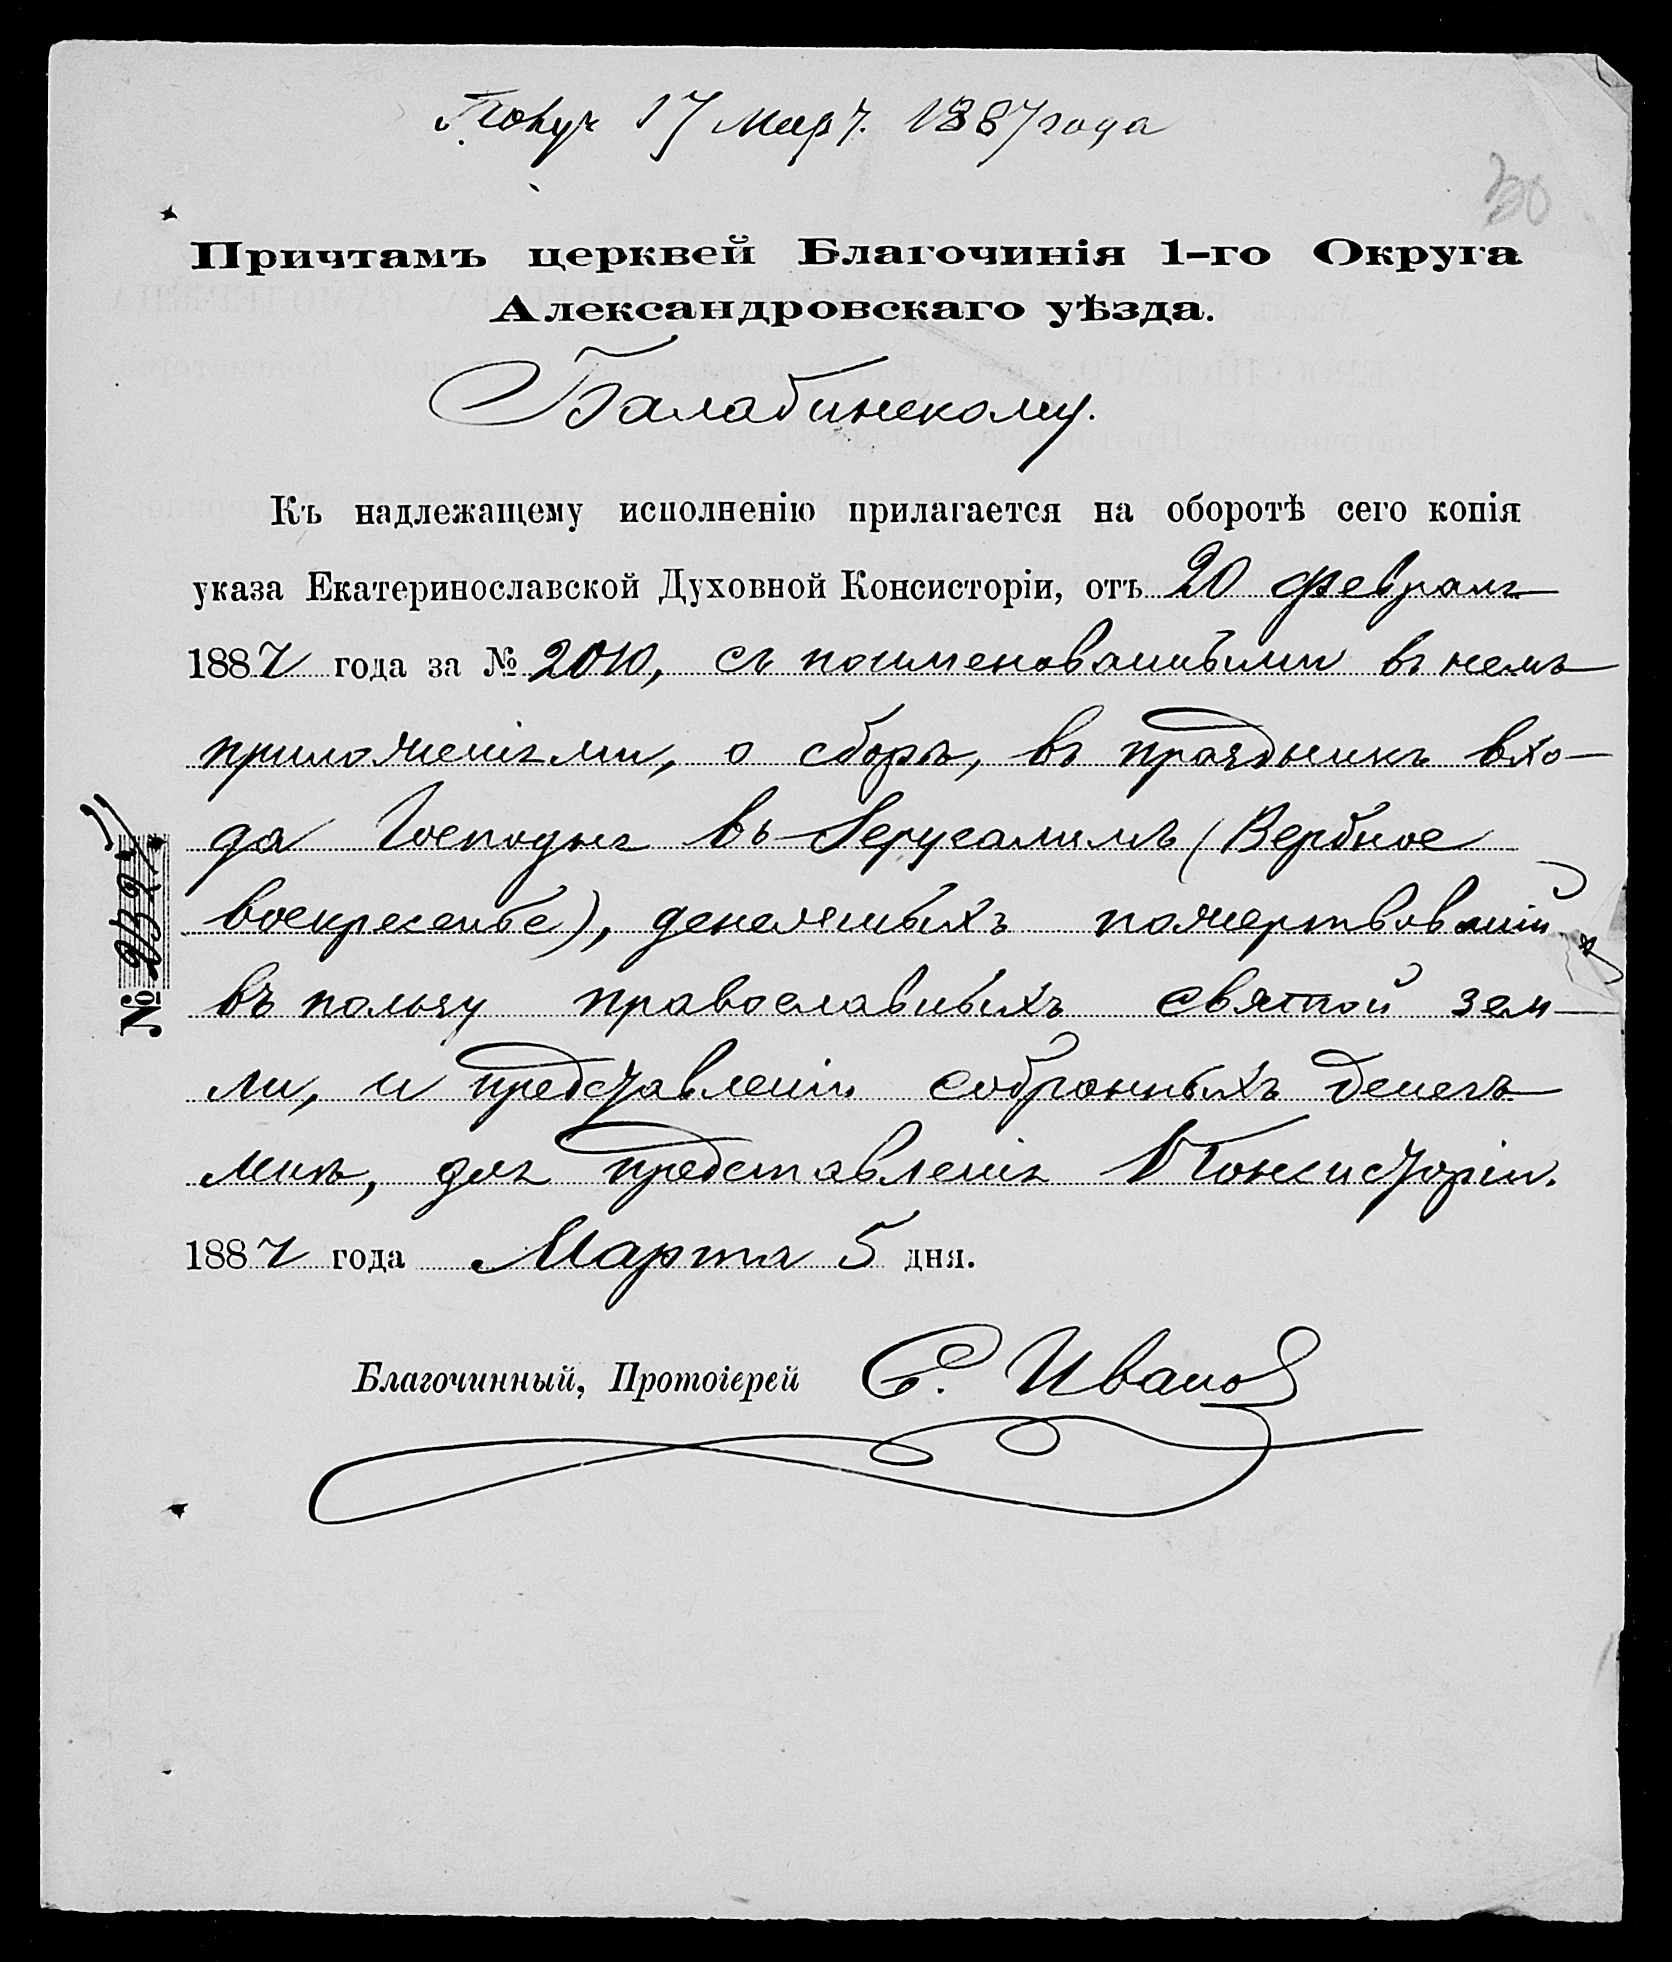 Получ 17 Март. 1887 года
Причтамъ церквей Благочинія 1-го Округа
Александровскаго уѣзда.
Балабинскому.
Къ надлежащему исполненію прилагается на оборотѣ сего копія
указа Екатеринославской Духовной Консисторіи, отъ 20 февраля
1887 года за № 2010, съ поименованными въ немъ
приложеніями, о сборѣ, въ праздникъ вхо-
да Господня въ Іерусалимъ (Вербное
воскресенье), денежныхъ пожертвованій
въ пользу православныхъ святой зем-
ли, и представленіи собранныхъ денегъ
мнѣ, для представленія Консисторіи.
1887 года Марта 5 дня.
Благочинный, Протоіерей С. Иванов
№